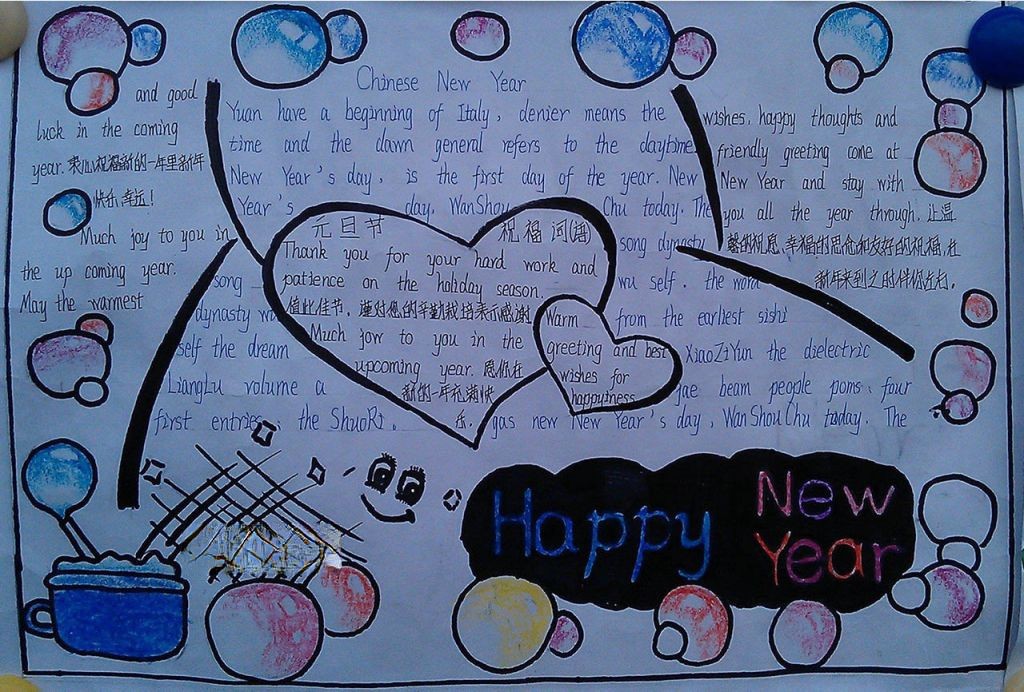 Chinese New Year
and good
luck in the coming
year. 衷心祝福新的一年里新年
快乐幸运!
Much joy to you in
the up coming year.
May the warmest
wishes, happy thoughts and
friendly greeting come at
New Year and stay with
you all the year through. 让温
馨的祝愿、幸福的思念和友好的祝福,在
新年来到之时伴你左右。
Yuan have a beginning of Italy, denier means the
time and the dawn general refers to the daytime.
New Year's day, is the first day of the year. New
Year's day. WanShou Chu today. The
song song dynasty
wu self. the word
dynasty wu from the earliest sishi
self the dream XiaoZiYun the dielectric
LiangLu volume a jae beam people poms: four
first entries: the ShuoRi, gas new New Year's day, WanShouChu today. The
元旦节 祝福词(语)
Thank you for your hard work and
patience on the holiday season.
值此佳节,谨对您的辛勤栽培表示感谢
Much jow to you in the
upcoming year. 愿你在
新的一年充满快
乐.
Warm
greeting and best
wishes for
happyiness
Happy New
Year